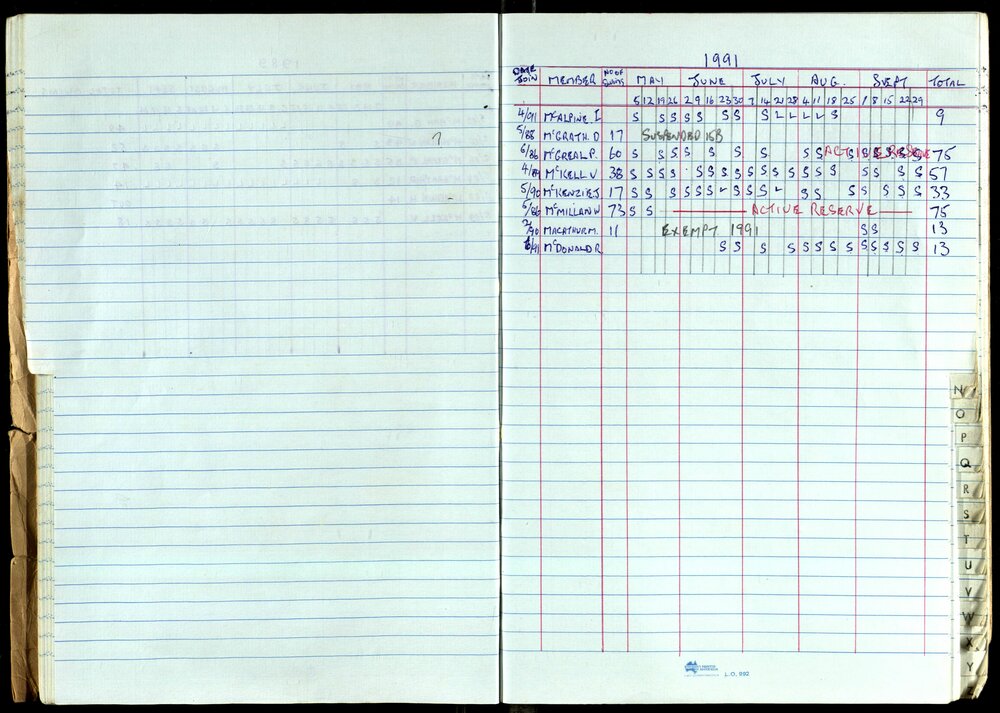 1991
DATE JOIN MEMBER NO OF SWIMS MAY JUNE JULY AUG. SEPT TOTAL
5 12 19 26 2 9 16 23 30 7 14 21 28 4 11 18 25 1 8 15 22 29
4/91 McALPINE. I S S S S S S S S L L L L S 9
5/88 McGRATH. D 17 SUSPENDED 15B
6/86 McGREAL P. 60 S S S S S S S S S ACTIVE RESERVE 75
4/89 McKELL V 38 S S S S S S S S S S S S S S S S S S S 57
5/90 McKENZIE J 17 S S S S S S L S S S L S S S S S S S 33
5/86 McMILLAN W 73 S S ACTIVE RESERVE 75
2/90 MACATHUR M. 11 EXEMPT 1991 S S 13
6/91 McDONALD R. S S S S S S S S S S S S S 13
N
O
P
Q
R
S
T
U
V
W
X
Y
L.O. 992